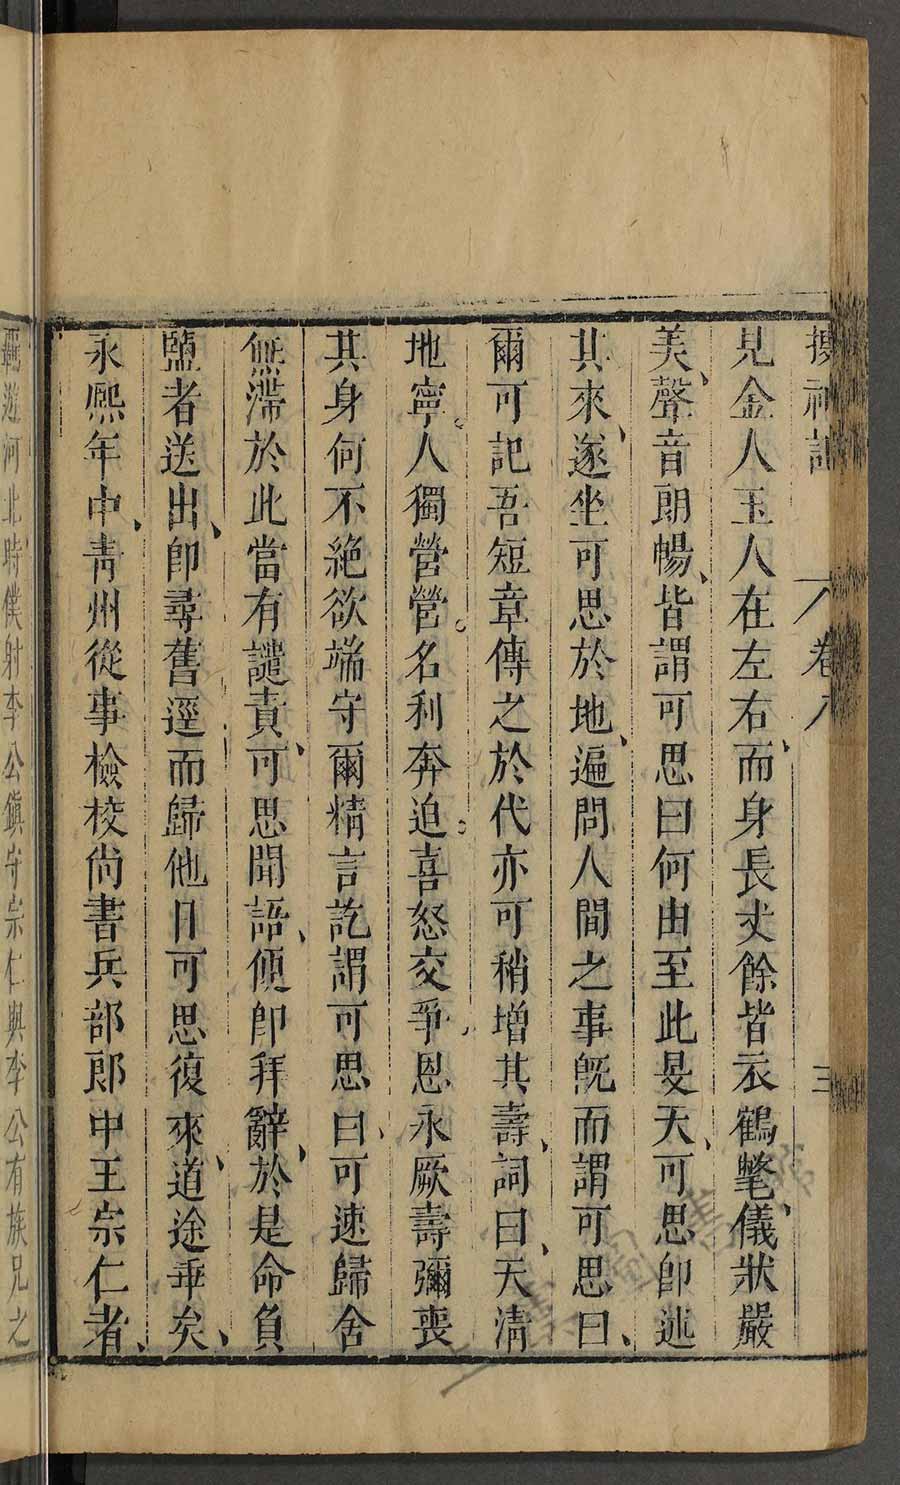 搜神記 卷八 三
見金人玉人在左右、而身長丈餘皆衣鶴氅、儀狀嚴
美、聲音朗暢、皆謂可思曰何由至此旻天、可思卽述
其來、遂坐可思於地、遍問人間之事旣而謂可思曰、
爾可記吾短章傳之於代亦可稍增其壽、詞曰、天淸
地寧。人獨營營。名利奔迫。喜怒交爭、恩永厥壽彌喪
其身何不絶欲端守爾精言訖謂可思曰、可速歸舍
無滯於此當有譴責、可思聞語、便卽拜辭、於是命負
鹽者送出、卽尋舊逕而歸他日可思復來、道途乖矣、
永熙年中、靑州從事檢校尙書兵部郞中王宗仁者、
羈遊河北時僕射李公鎭守宗仁與李公有族兄之